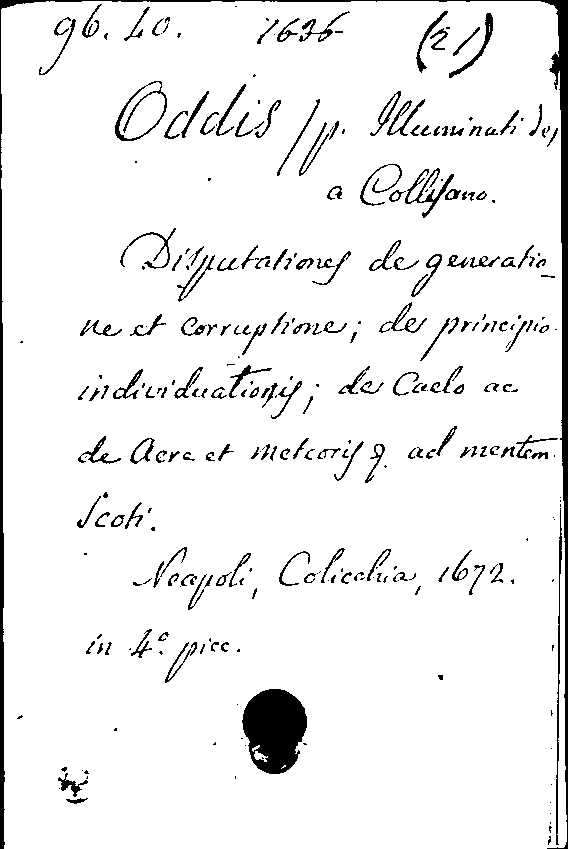 96. 40. 1636 (21)
Oddis / p. Illuminati de,
a Collisano.
Disputationes de generatio_
ne et corruptione; de principio
individuationis; de Caelo ac
de Aere et meteoris &. ad mentem
Scoti.
Neapoli, Colicchia, 1672.
in 4.° picc.